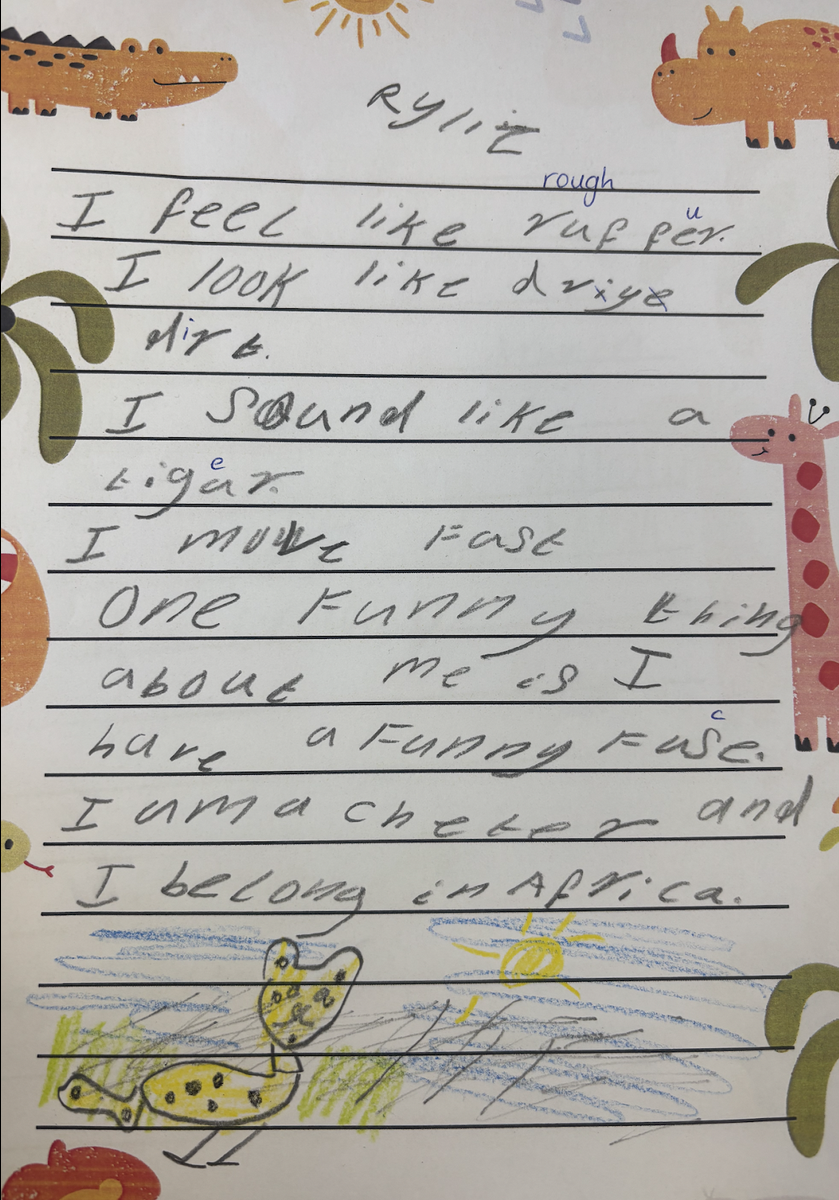 Rylie
rough
I feel like ruffer.
u
I look like driye
dirt.
I Sound like a
tigar.
e
I move Fast
One Funny thing
about me is I
have a Funny Fase.
c
I am a cheter and
I belong in Africa.